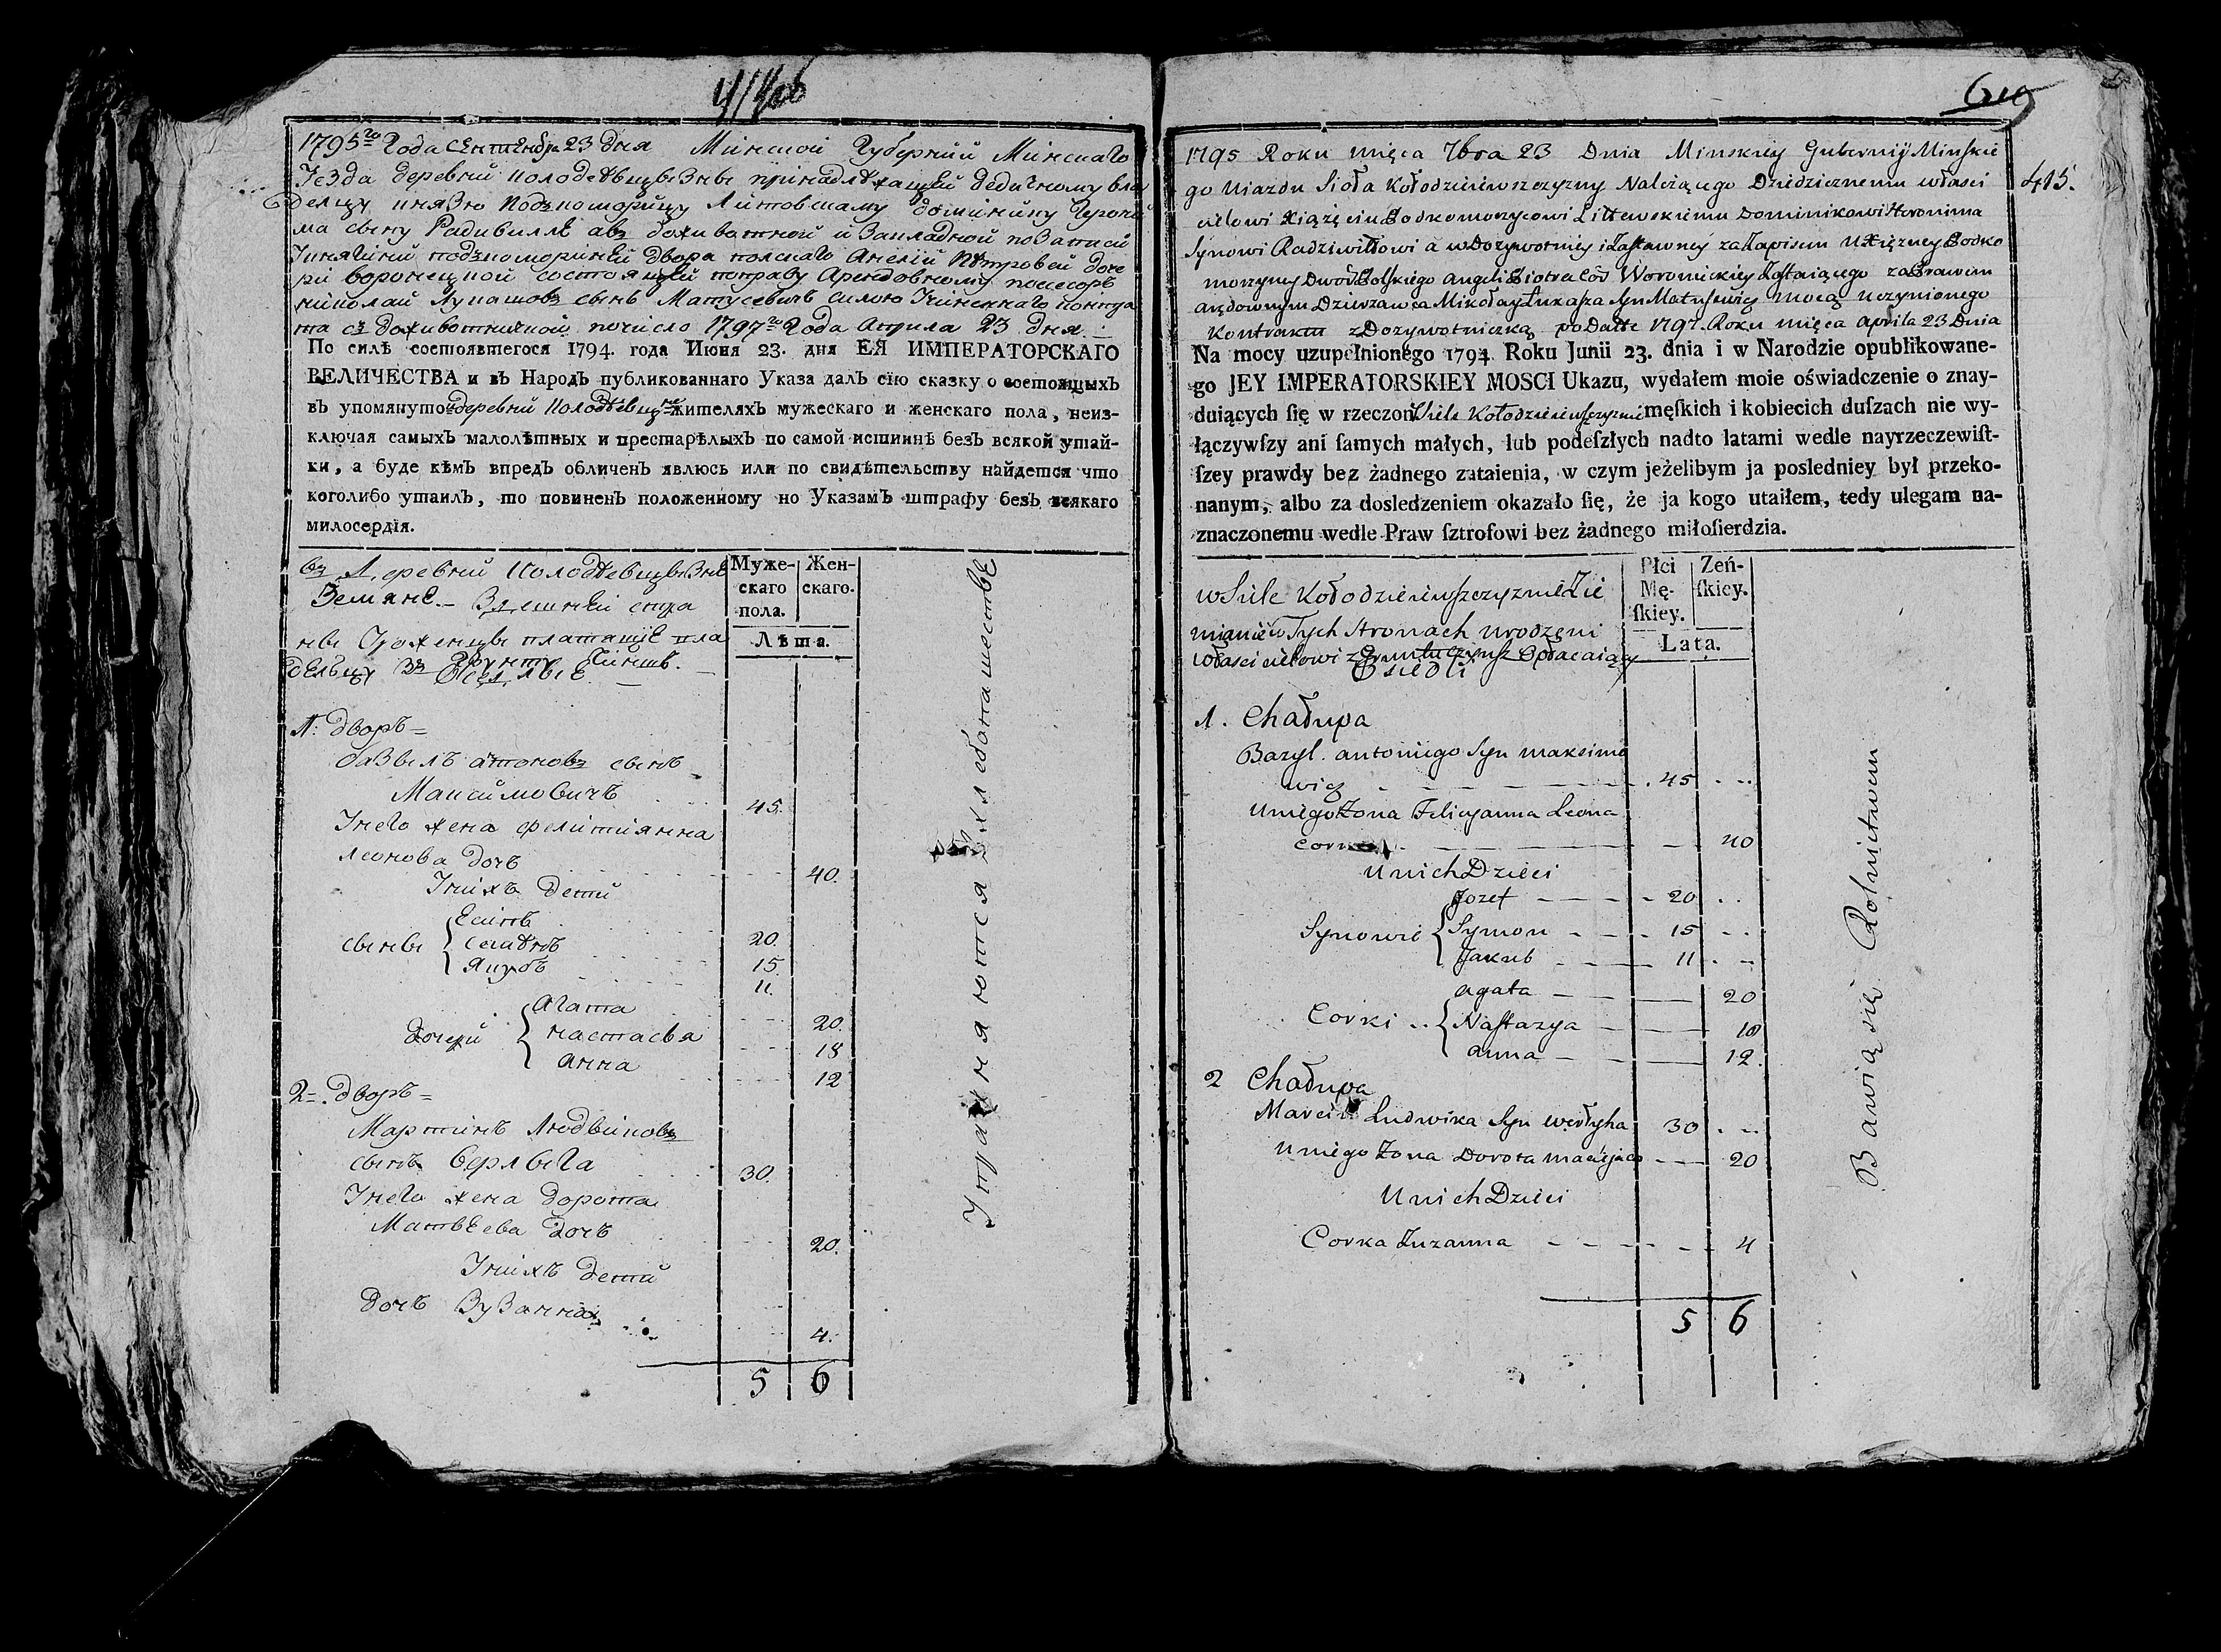 1795го Года Сентебря 23 дня Минской Губерний Минскаго
Уезда деревни Колодѣевщызны принадлѣжащей дедичному вла
делцу князю Подкоморицу Литовскому Доминику Герони
ма сыну Радивиллѣ а въ доживотной и закладной по записи
Княгини подкомориней двора полского Анелии Петровой доче
ри Воронецкой состоящей по праву арендовному посесоръ
Николай Лукашовъ сынъ Матусевичъ силою учиненнаго контра
та съ доживотничкой по число 1797го Года Априла 23 дня
По силѣ состоявшегося 1794. года Июня 23. дня ЕЯ ИМПЕРАТОРСКАГО
ВЕЛИЧЕСТВА и въ Народъ публикованнаго Указа далъ сїю сказку о состоящыхъ
въ упомянутой деревни Колодѣевщизне жителяхъ мужескаго и женскаго пола, неиз-
ключая самыхъ малолѣтныхъ и престарѣлыхъ по самой истиннѣ безъ всякой утай-
ки, а буде кѣмъ впредъ обличенъ явлюсь или по свидѣтельству найдется что
коголибо утаилъ, то повиненъ положенному по Указамъ штрафу безъ всякаго
милосердїя.
въ Деревни Колодѣевщызне
Земяне. Здешней стра
ны Уроженцы платящие вла
дельцу за грунтъ чиншъ.
Оселлые
Муже-
скаго
пола.
Жен-
скаго.
Лѣта.
1: дворъ
базылъ антоновъ сынъ
Максимовичъ 45.
У него жена фелитиянна
леонова дочъ 40.
У них детей
сыны
Есипъ 20.
Семѣнъ 15.
Якубъ 11.
дочери
Агата 20.
Настасья 18
Анна 12
2. дворъ
Мартинъ Людвиковъ
сынъ Верлыга 30.
У него жена дорота
Матвеева дочъ 20.
У них детей
дочъ Зузанна 4.
5 6
Упражняются в хлебопашестве
415.
1795 Roku mięca 7bra 23 Dnia Minskiey Gubernij Minskie
go Ujazdu Sioła Kołodzieiewszczyzny Należącego Dziedzicznemu własci
cielowi Xiążęciu Podkomorzycowi Littewskiemu Dominikowi Heronima
Synowi Radziwiłłowi a w Dożywotniey i Zastawney za Zapisem Xiężney Podko
morzyney Dwór Polskiego Angeli Piotra Cór Woronieckiey Zostaiącego za Prawem
arędownym Dzierzawca Mikołay Łukasza Syn Matusewicz mocą uczynionego
Kontraktu z Dożywotniczką po Datte 1797. Roku mięca aprila 23 Dnia
Na mocy uzupełnionego 1794 Roku Junii 23. dnia i w Narodzie opublikowane-
go JEY IMPERATORSKIEY MOSCI Ukazu, wydałem moie oświadczenie o znay-
duiących ſię w rzeczon Siele Kołodzieiewszczyznie męſkich i kobiecich duſzach nie wy-
łączywſzy ani ſamych małych, lub podeſzłych nadto latami wedle nayrzeczewiſt-
ſzey prawdy bez żadnego zataienia, w czym jeżelibym ja posledniey był przeko-
nanym, albo za dosledzeniem okazało ſię, że ja kogo utaiłem, tedy ulegam na-
znaczonemu wedle Praw ſztrofowi bez żadnego miłoſierdzia.
w Siele Kołodzieiewszczyznie Zie
mianie w Tych Stronach urodzeni
własci cielowi z Gruntu czynsz Opłacaiący
Osiedli
Płci
Mę-
ſkiey.
Zeń-
ſkiey.
Lata.
1. Chałupa
Bazyl. antoniego Syn maksimo
wicz 45
u niego Żona Felicyanna Leona
corka 40
U nich Dzieci
Synowie
Jozef 20
Symon 15
Jakub 11
Corki
agata 20
Nastazya 18
anna 12.
2 Chałupa
Marcin Ludwika Syn Werłyha 30
U niego Żona Dorota macieja 20
U nich Dzieci
Corka Zuzanna 4
5 6
Bawią się Rolnictwem